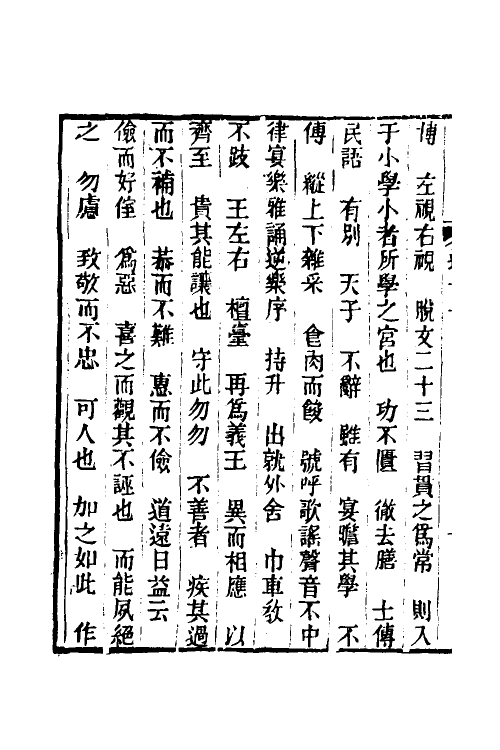 博　左視右視　脫文二十三　習貫之爲常　則入
于小學小者所學之宮也　功不匱　徹去膳　士傳
民語　有別　天子　不辭　雖有　宴瞻其學　不
傅　縱上下雜采　食肉而餕　號呼歌謠聲音不中
律宴樂雅誦逆樂序　持升　出就外舍　巾車敎
不跂　王左右　檀臺　再爲義王　異而相應　以
齊至　貴其能讓也　守此勿勿　不善者　疾其過
而不補也　恭而不難　惠而不儉　道遠日益云
儉而好侄　爲惡　喜之而觀其不誣也　而能夙絕
之　勿慮　致敬而不忠　可人也　加之如此　作